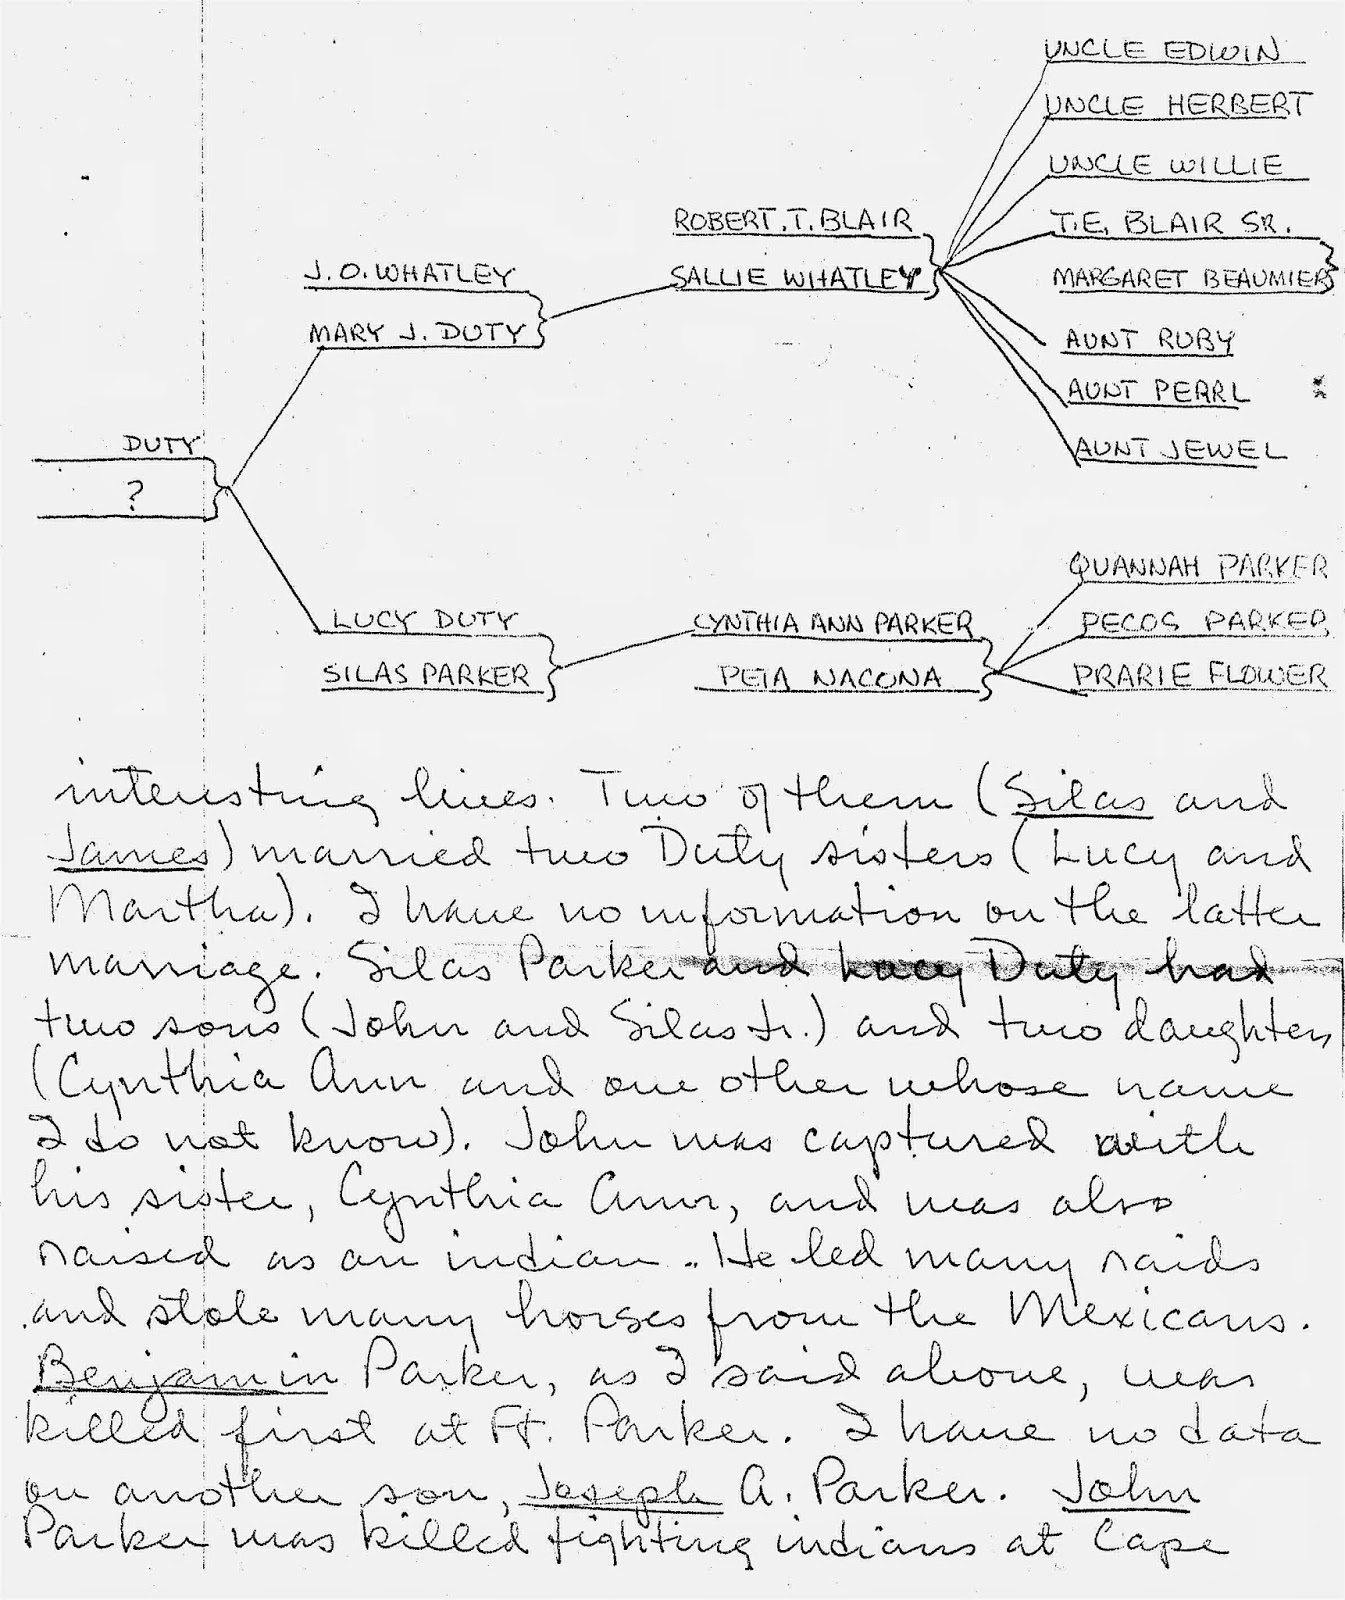 UNCLE EDWIN
UNCLE HERBERT
UNCLE WILLIE
ROBERT. T. BLAIR
T.E. BLAIR SR.
J. O. WHATLEY
SALLIE WHATLEY
MARGARET BEAUMIER
MARY J. DUTY
AUNT RUBY
AUNT PEARL
DUTY
AUNT JEWEL
?
QUANNAH PARKER
LUCY DUTY
CYNTHIA ANN PARKER
PECOS PARKER
SILAS PARKER
PETA NACONA
PRARIE FLOWER
interesting lives. Two of them (Silas and
James) married two Duty sisters (Lucy and
Martha). I have no information on the latter
marriage. Silas Parker and Lucy Duty had
two sons (John and Silas Jr.) and two daughters
(Cynthia Ann and one other whose name
I do not know). John was captured with
his sister, Cynthia Ann, and was also
raised as an indian. He led many raids
and stole many horses from the Mexicans.
Benjamin Parker, as I said above, was
killed first at Ft. Parker. I have no data
on another son, Joseph A. Parker. John
Parker was killed fighting indians at Cape